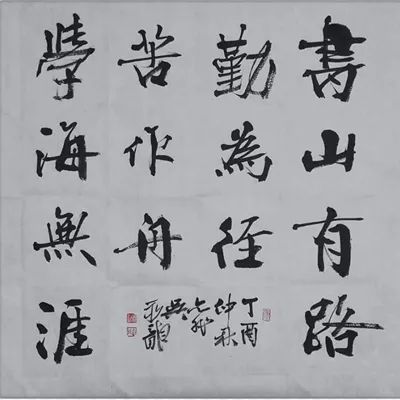 書山有路
勤為徑
學海無涯
苦作舟
丁酉
仲秋